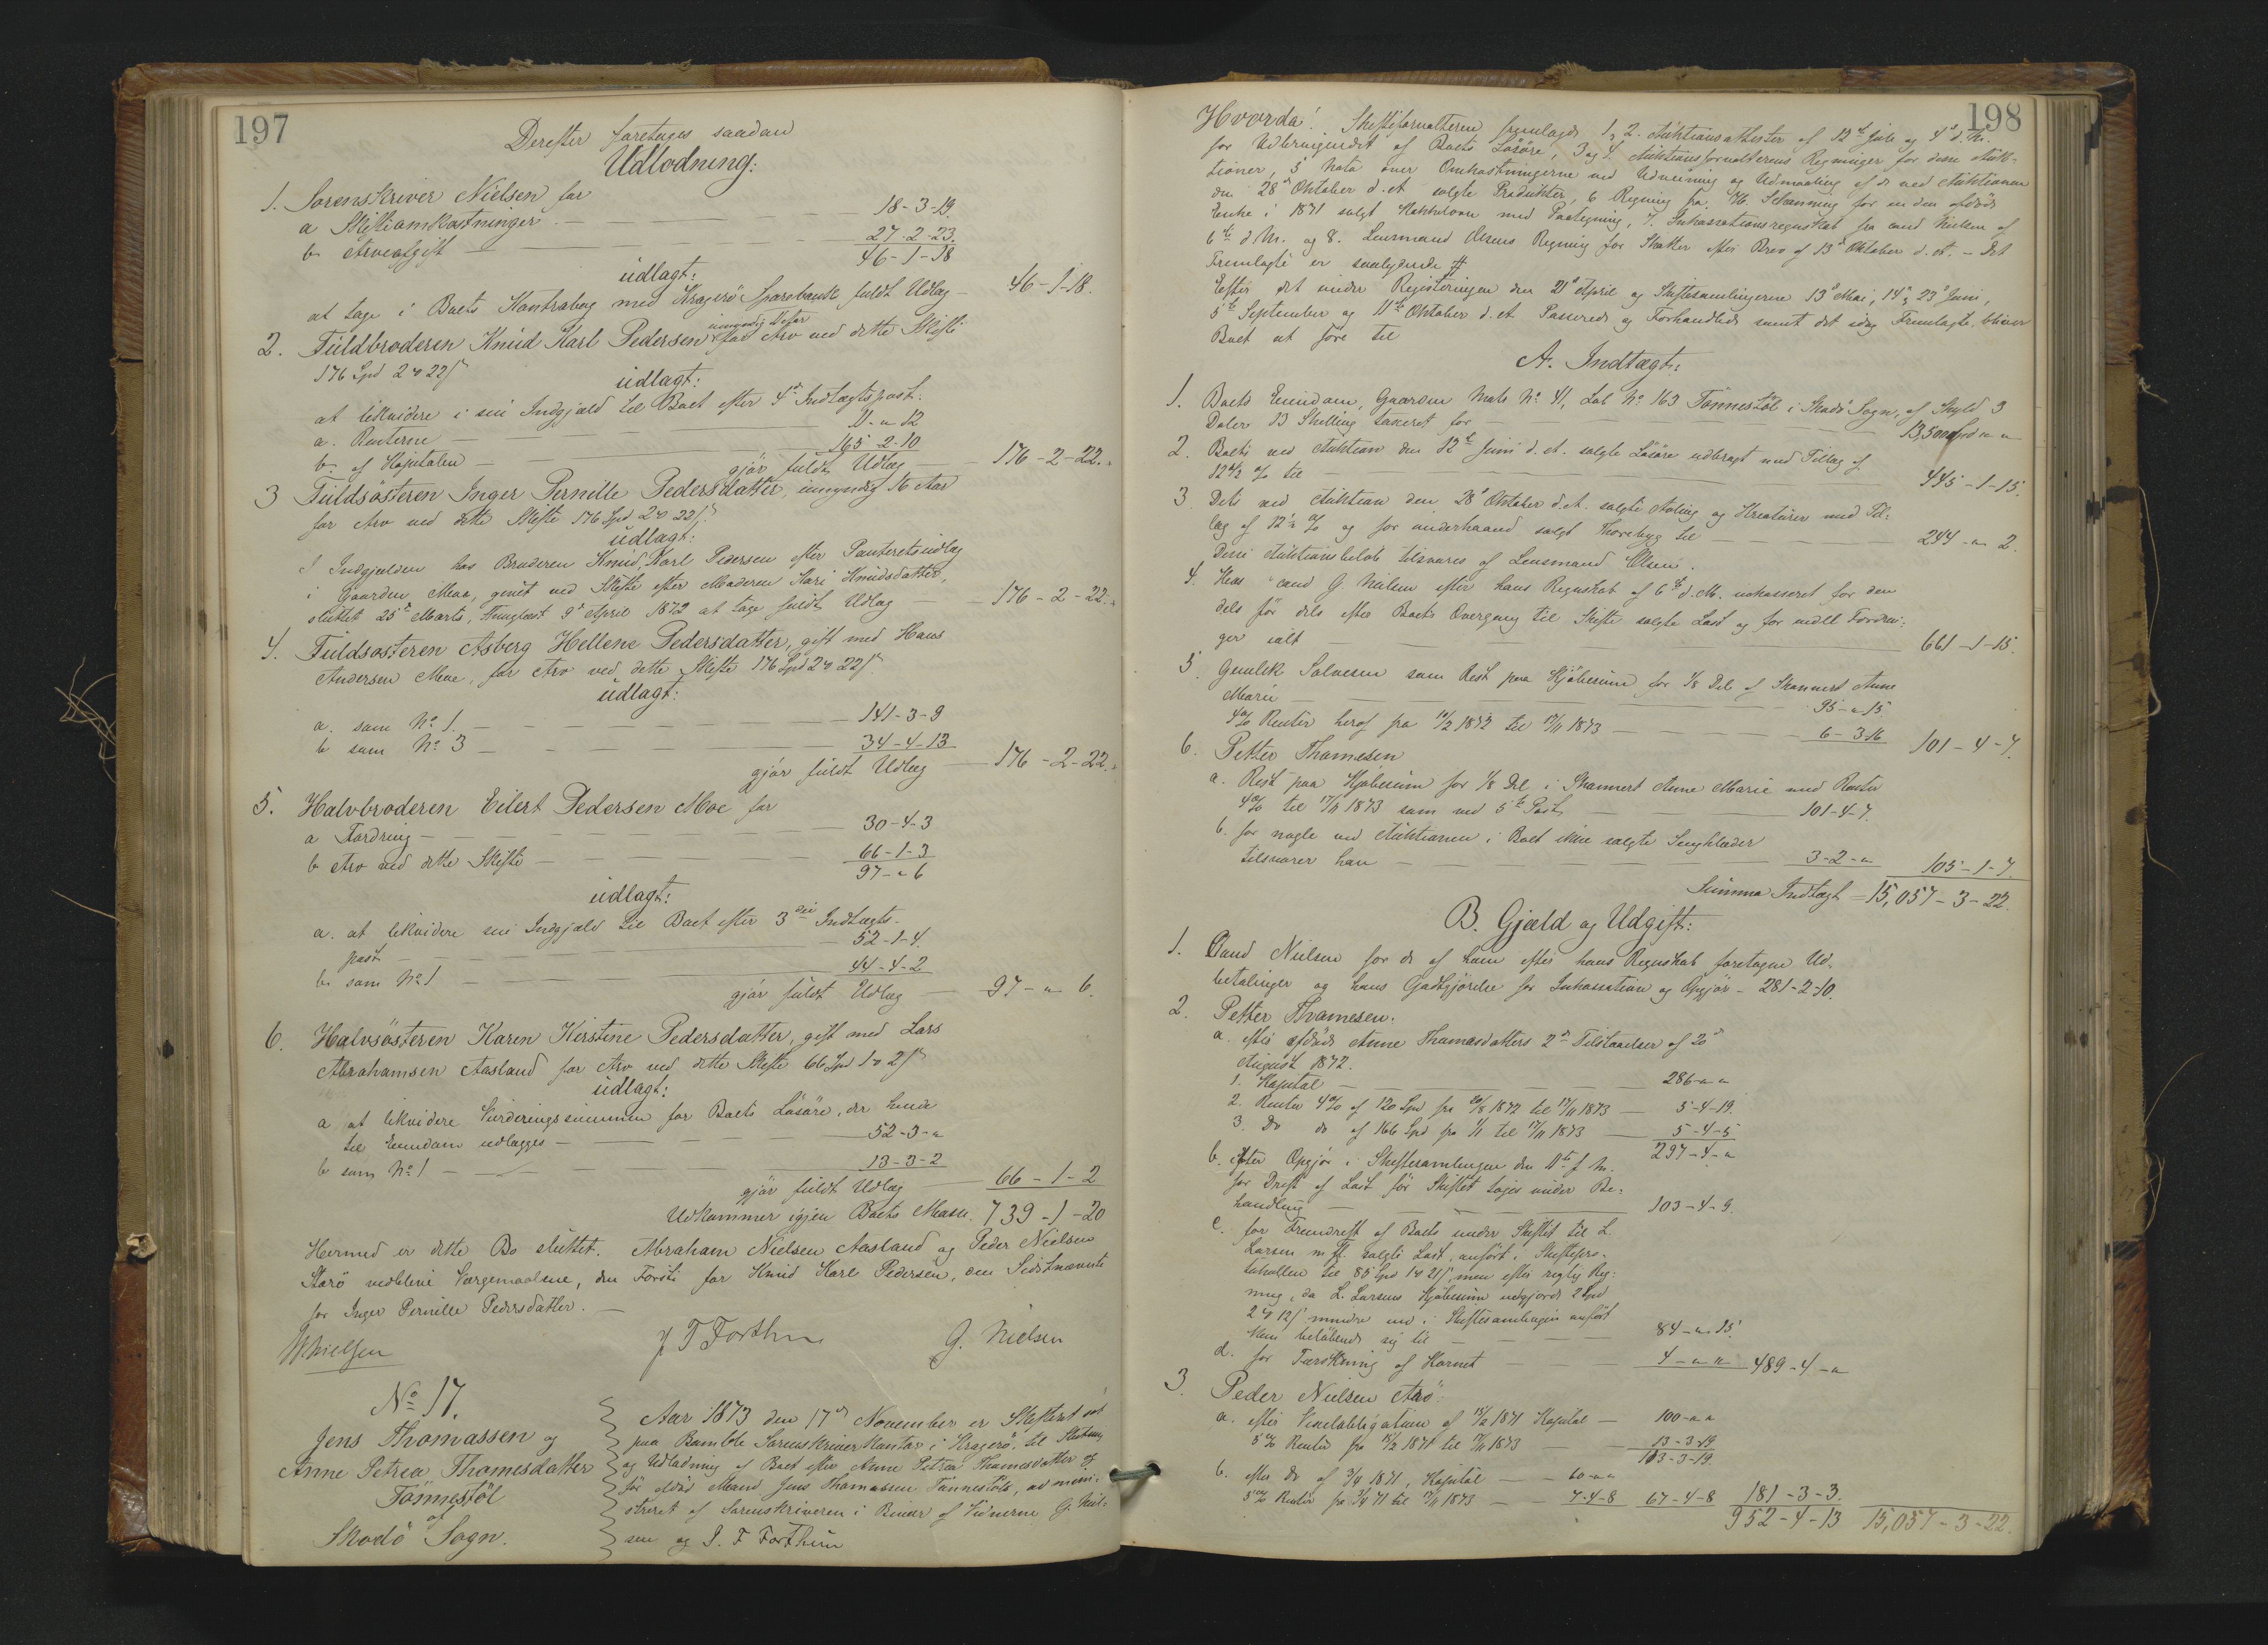 197
Derefter foretages saadan
Udlodning:
1. Sorenskriver Nielsen for
a Skifteomkostninger — 18-3-19.
b. Arveafgift — 27-2-23.
46-1-18
udlagt:
at tage i Boets Kontrabog med Kragerö Sparebank fuldt Udlæg — 46-1-18.
2. Fuldbroderen Knud Karl Pedersen for Arv ved dette Skifte
176 Spd 2 22
udlagt:
at likvidere i sin Indgjæld til Boet efter 4de Indtægtspost.
a. Renterne — 11-"-12
b. af Kapitalen — 165-2-10
gjör fuldt Udlæg — 176-2-22.
3 Fuldsösteren Inger Pernille Pedersdatter, umyndig 16 Aar
for Arv ved dette Skifte 176 Spd 2 22
udlagt:
I Indgjælden hos Broderen Knud Karl Pedersen efter Panteretsudlæg
i Gaarden Moe, givet ved Skifte efter Moderen Kari Knudsdatter,
sluttet 25de Marts, Thinglæst 9de April 1872 at tage fuldt Udlæg — 176-2-22.
4. Fuldsösteren Asberg Hellene Pedersdatter, gift med Hans
Andersen Moe, for Arv ved dette Skifte 176 Spd 2 22
udlagt:
a. som No 1. — 141-3-9
b som No 3 — 34-4-13
gjör fuldt Udlæg — 176-2-22.
5. Halvbroderen Eilert Pedersen Moe for
a Fordring — 30-4-3
b Arv ved dette Skifte — 66-1-3
97-"-6
udlagt:
a. at likvidere sin Indgjæld til Boet efter 3die Indtægts-
post — 52-1-4.
b. som No 1 — 44-4-2
gjör fuldt Udlæg — 97-"-6.
6. Halvsösteren Karen Kirstine Pedersdatter, gift med Lars
Abrahamsen Aasland for Arv ved dette Skifte 66 Spd 1 2
udlagt:
a at likvidere Vurderingssummen for Boets Lösöre, der hende
til Eiendom udlægges — 52-3-"
b som No 1 — 13-3-2
gjör fuldt Udlæg — 66-1-2
Udkommer igjen Boets Masse. 739-1-20
Hermed er dette Bo sluttet. Abraham Nielsen Aasland og Peder Nielsen
Starö vedblive Værgemaalene, den Förste for Knud Karl Pedersen, den Sidstnævnte
for Inger Pernille Pedersdatter. —
Nielsen J F Forthun G. Nielsen
No 17.
Jens Thomassen og
Anne Petrea Thomesdatter
Tönnestöl
af
Skadö Sogn.
Aar 1873 den 17de November er Skifteret sat
paa Bamble Sorenskriverkontor i Kragerö til Slutning
og Udlodning af Boet efter Anne Petrea Thomesdatter og
för afdöd Mand Jens Thomassen Tönnestöl, admini-
streret af Sorenskriveren i Bivær af Vidnerne G. Niel-
sen og J. F Forthun
198
Hvorda! Skifteforvalteren fremlagde 1, 2. Auktionsattester af 12te Juli og 4de d. M.
for Udbringendet af Boets Lösöre, 3 og 4. Auktionsforvalterens Regninger for disse Auk-
tioner, 5 Nota over Omkostningerne ved Udvisning og Udmaaling af de ved Auktionen
den 28de Oktober d. A. solgte Produkter, 6 Regning fra Schanning for en den afdöde
Enke i 1871 solgt Kakkelovn med Paategning, 7. Inkassationsregnskab fra cand Nielsen af
6te d. M. og 8. Lensmand Olsens Regning for Skatter efter Brev af 13de Oktober d. A. — Det
Fremlagte er saalydende #
Efter det under Registreringen den 21de April og Skiftesamlingerne 13de Mai, 14de, 23de Juni,
5te September og 11te Oktober d. A. Passerede og Forhandlede samt det idag Fremlagte, bliver
Boet at före til
A. Indtægt:
1. Boets Eiendom, Gaarden Matr No 41, Löb No 163 Tönnestöl i Skadö Sogn, af Skyld 3
Daler 13 Skilling taxeret for — 13,500 Spd " "
2. Boets ved Auktion den 12te Juni d. A. solgte Lösöre udbragt med Tillæg af
12 1/2 % til — 445-1-15.
3. Dets ved Auktion den 28de Oktober d. A. solgte Avling og Kreaturer med Til-
læg af 12 1/2 % og for underhaand solgt Thorebyg til — 244-"-2.
Disse Auktionsbelöb tilsvares af Lensmand Olsen.
4. Hos cand G Nielsen efter hans Regnskab af 6te d. M. inkasseret for den
dels för dels efter Boets Overgang til Skifte solgte Last og for meldt Fordrin-
ger ialt — 661-1-15.
5. Gunlek Salvesen som Rest paa Kjöbesum for 1/8 Del af Skonnert Anne
Marie — 95-"-15.
4% Renter heraf fra 1872 til 17/11 1873 — 6-3-16 101-4-7.
6. Petter Thomesen
a. Rest paa Kjöbesum for 1/8 Del i Skonnert Anne Marie med Renter
4% til 17/11 1873 som ved 5te Post — 101-4-7.
b. for nogle ved Auktionen i Boet ikke solgte Sengklæder
tilsvarer han — 3-2-" 105-1-7.
Summa Indtægt = 15,057-3-22.
B. Gjæld og Udgift:
1. Cand Nielsen for de af ham efter hans Regnskab foretagne Ud-
betalinger og hans Godtgjörelse for Inkassation og Opgjör — 281-2-10.
2. Petter Thomesen.
a. efter afdöde Anne Thomasdatters 2de Tilstaaelser af 20de
August 1872.
1. Kapital — 286-"-"
2. Renter 4% af 120 Spd fra 20/8 1872 til 17/11 1873 — 5-4-19.
3. Do do af 166 Spd fra 1/1 til 17/11 1873 — 5-4-5
297-4-"
b. efter Opgjör i Skiftesamlingen den 11te f. M.
for Drift af Last för Skiftet toges under Be-
handling — 103-4-9.
c. for Fremdrift af Boets under Skiftet til L.
Larsen m. fl. solgte Last, anfört i Skiftepro-
tokollen til 85 Spd 1 21, men efter rigtig Reg-
ning, da L. Larsens Kjöbesum udgjorde 2 Spd
2 12 mindre end i Skiftesamlingen anfört
kun belöbende sig til — 84-"-15.
d. for Tærskning af Kornet — 4-"-" 489-4-"
3. Peder Nielsen Arö.
a. efter Vexelobligation af 15/2 1871 Kapital — 100-"-"
5% Renter fra 15/2 1871 til 17/11 1873 — 13-3-19
113-3-19.
b. efter Do af 3/4 1871, Kapital — 60-"-"
5% Renter fra 3/4 71 til 17/11 1873 — 7-4-8 67-4-8 181-3-3.
952-4-13 15,057-3-22.